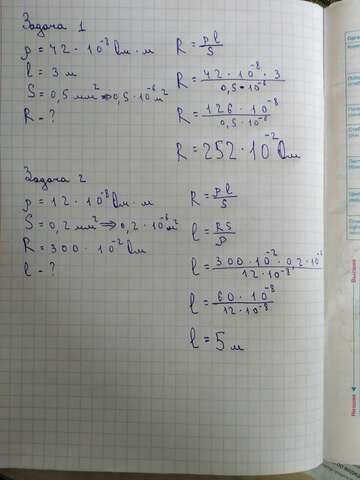 Задача 1
ρ = 42 · 10⁻⁸ Ом · м
l = 3 м
S = 0,5 мм² ⇒ 0,5 · 10⁻⁶ м²
R - ?
R = ρl/S
R = 42 · 10⁻⁸ · 3 / 0,5 · 10⁻⁶
R = 126 · 10⁻⁸ / 0,5 · 10⁻⁶
R = 252 · 10⁻² Ом
Задача 2
ρ = 12 · 10⁻⁸ Ом · м
S = 0,2 мм² ⇒ 0,2 · 10⁻⁶ м²
R = 300 · 10⁻² Ом
l - ?
R = ρl/S
l = RS/ρ
l = 300 · 10⁻² · 0,2 · 10⁻⁶ / 12 · 10⁻⁸
l = 60 · 10⁻⁸ / 12 · 10⁻⁸
l = 5 м
Высшее
Низшее